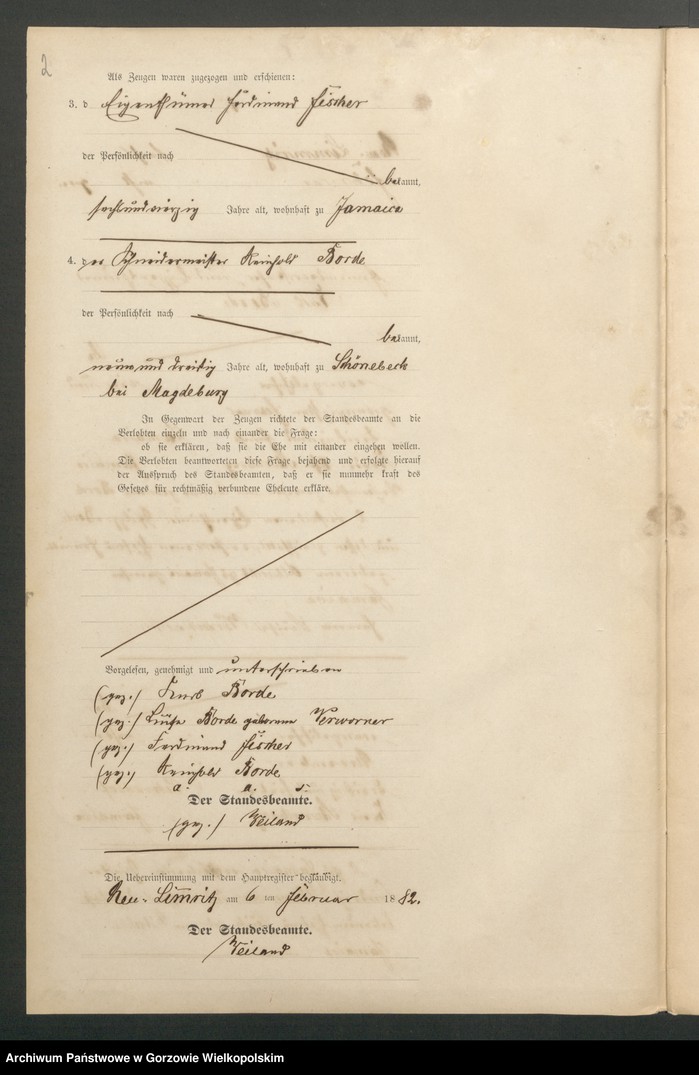 2
Als Zeugen waren zugezogen und erschienen:
3. d Eigenthümer Ferdinand Fischer
der Persönlichkeit nach
bekannt,
sechsundvierzig Jahre alt, wohnhaft zu Jamaica
4. der Schneidermeister Reinhold Borde
der Persönlichkeit nach
bekannt,
neununddreißig Jahre alt, wohnhaft zu Schönebeck
bei Magdeburg
In Gegenwart der Zeugen richtete der Standesbeamte an die
Verlobten einzeln und nach einander die Frage:
ob sie erklären, daß sie die Ehe mit einander eingehen wollen.
Die Verlobten beantworteten diese Frage bejahend und erfolgte hierauf
der Ausspruch des Standesbeamten, daß er sie nunmehr kraft des
Gesetzes für rechtmäßig verbundene Eheleute erkläre.
Vorgelesen, genehmigt und unterschrieben
(gez.) Borde
(gez.) Borde geborene Verworner
(gez.) Ferdinand Fischer
(gez.) Reinhold Borde
a. a. s.
Der Standesbeamte.
(gez.) Weiland
Die Uebereinstimmung mit dem Hauptregister beglaubigt.
Neu-Limritz am 6 ten Februar 1882.
Der Standesbeamte.
Weiland
Archiwum Państwowe w Gorzowie Wielkopolskim